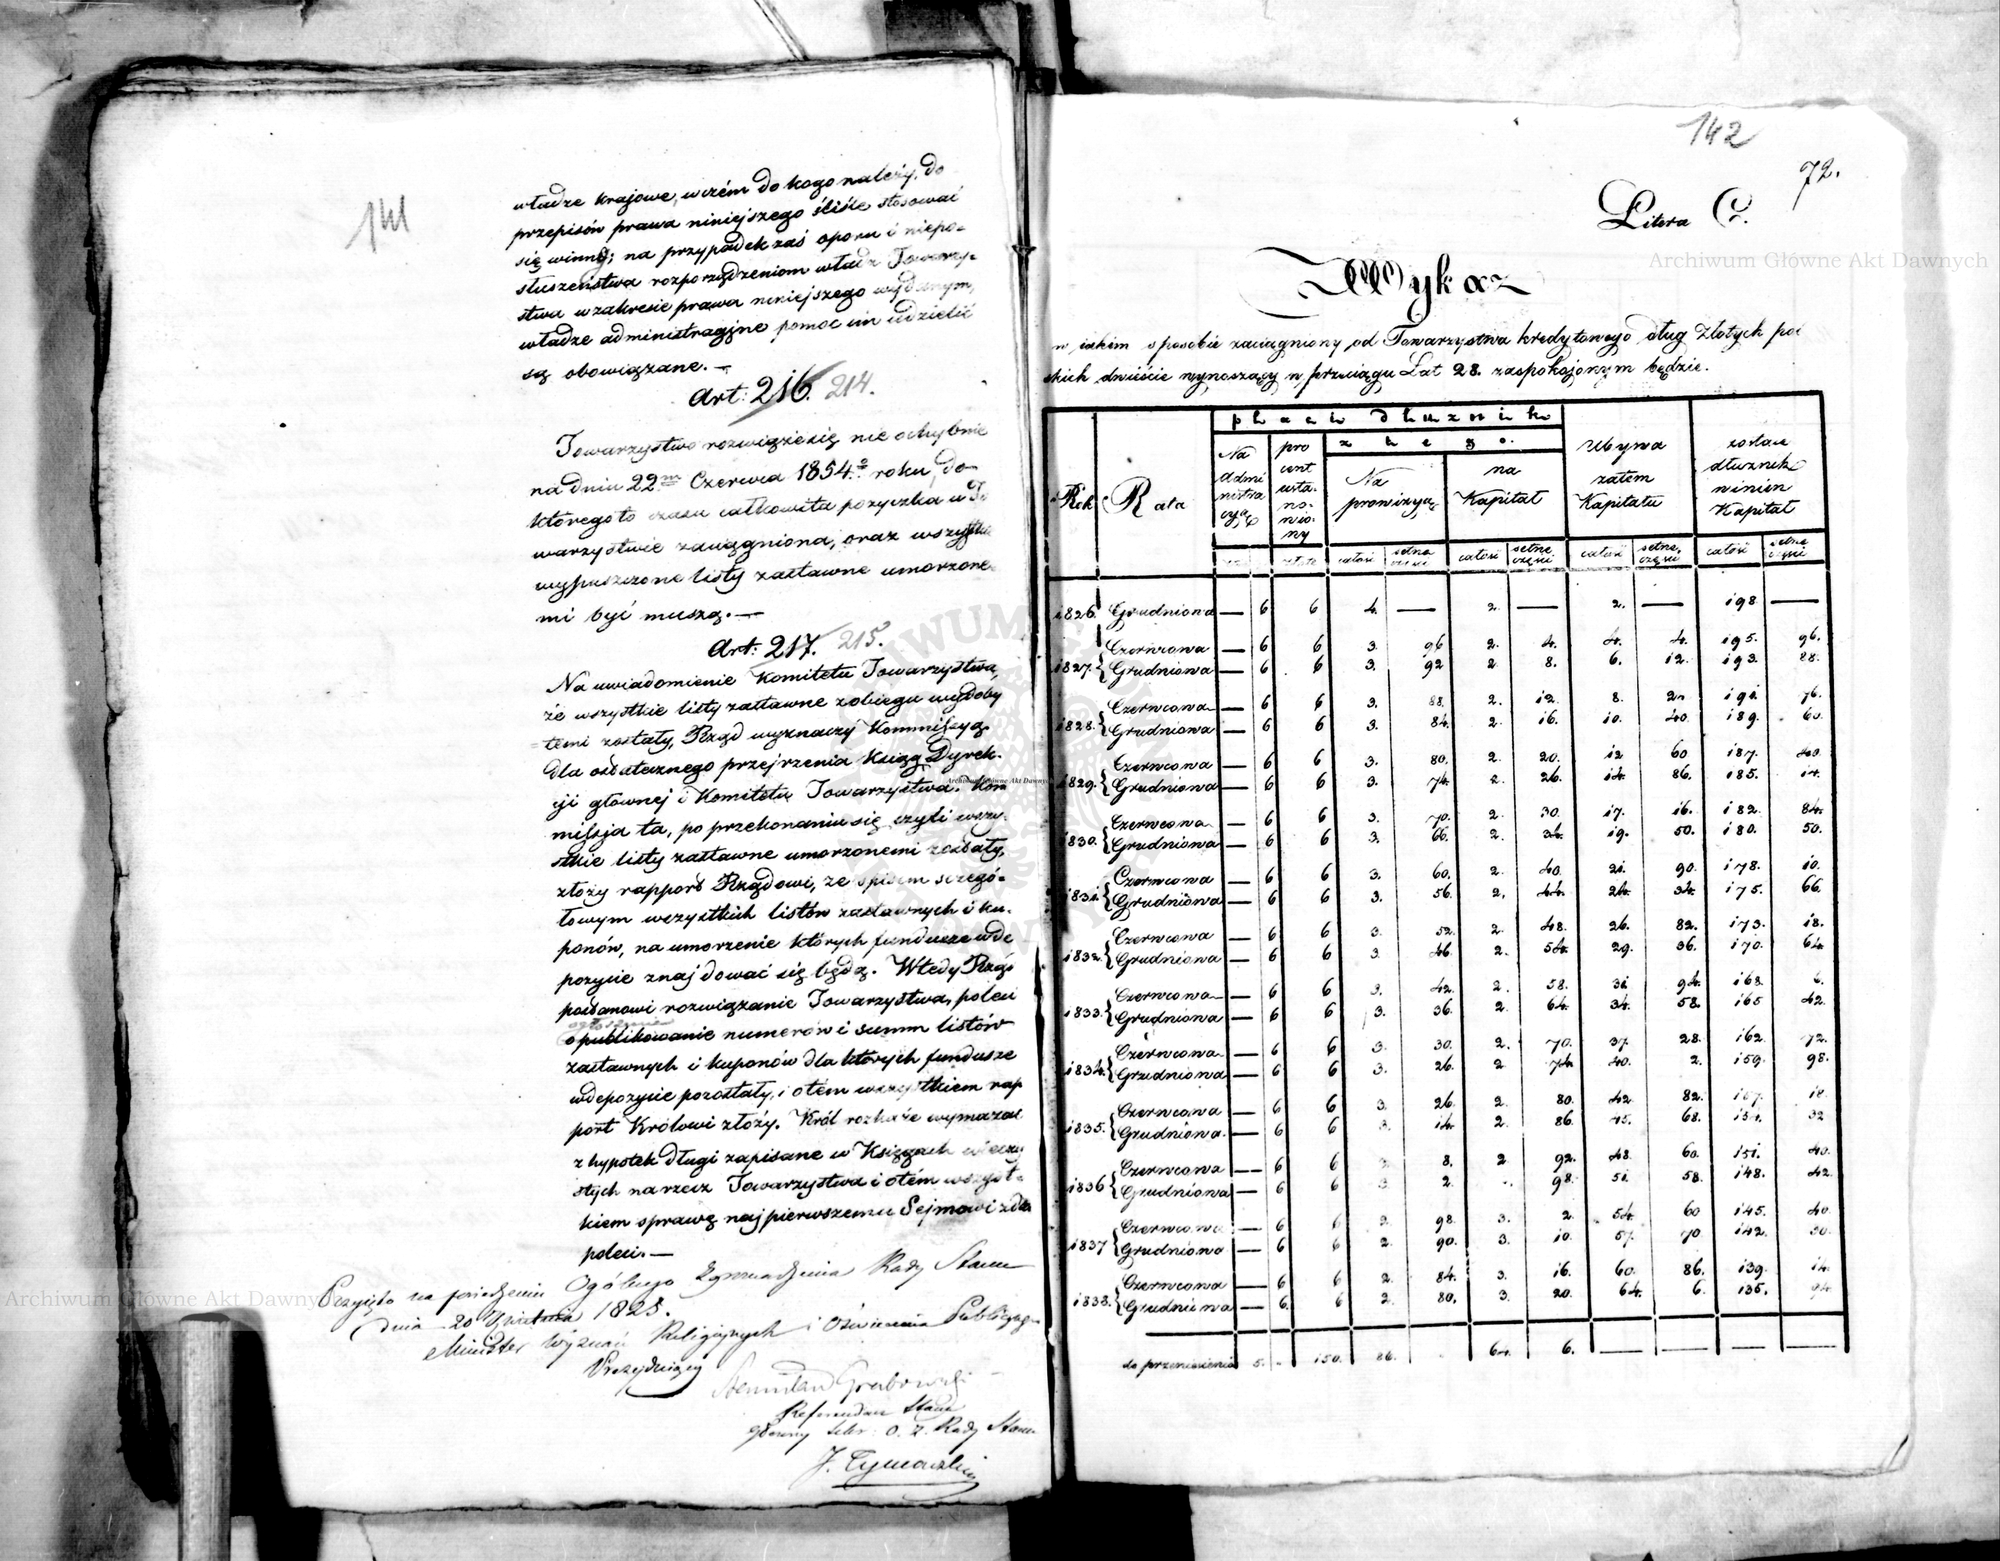 141
władze krajowe, w czém do kogo należy, do
przepisów prawa niniejszego ściśle stosować
się winny; na przypadek zaś oporu i niepo-
słuszeństwa rozporządzeniom władz Towarzy-
stwa w zakresie prawa niniejszego wydanym,
władze administracyjne pomoc im udzielić
są obowiązane. —
Art: 216. 214.
Towarzystwo rozwiąże się nieochybnie
na dniu 22m Czerwca 1854.o roku, do
którego to czasu całkowita pożyczka w To
warzystwie zaciągniona, oraz wszystkie
wypuszczone listy zastawne umorzone-
mi być muszą. —
Art: 217. 215.
Na uwiadomienie Komitetu Towarzystwa,
że wszystkie listy zastawne z obiegu wydoby
temi zostały, Rząd wyznaczy Kommissyą
dla ostatecznego przejrzenia Ksiąg Dyrek-
cji głównej i Komitetu Towarzystwa. Kom
missja ta, po przekonaniu się czyli wszy-
stkie listy zastawne umorzonemi zostały,
złoży rapport Rządowi, ze spisem szczegó-
łowym wszystkich listów zastawnych i ku-
ponów, na umorzenie których fundusze w de
pozycie znajdować się będą. Wtedy Rząd
postanowi rozwiązanie Towarzystwa, poleci
ogłoszenie
opublikowanie numerów i summ listów
zastawnych i kuponów dla których fundusze
w depozycie pozostały, i o tém wszystkiem rap
port Królowi złoży. Król rozkaże wymazać
z hypotek długi zapisane w Księgach wieczy
stych na rzecz Towarzystwa i o tém wszyst-
kiem sprawę najpierwszemu Sejmowi zdać
poleci. —
Przyjęto na posiedzeniu Ogólnego Zgromadzenia Rady Stanu
dnia 20 Kwietnia 1825.
Minister Wyznań Religijnych i Oświecenia Publicznego
Prezydujący
Stanisław Grabowski
Referendarz Stanu
główny Sekr: O. Z. Rady Stanu
J. Tymowski
142
72.
Litera C.
Wykaz
w jakim sposobie zaciągniony od Towarzystwa kredytowego dług Złotych pol
skich dwieście wynoszący w przeciągu Lat 28. zaspokojonym będzie.
płaci dłużnik
z tego.
Rok Rata Na admi nistra cyą pro cent usta- no- wio- ny Na prowizyą na Kapitał Ubywa zatem Kapitału zostaie dłużnik winien Kapitał
całość setne części całość setne części całość setne części całość setne części
1826. Grudniowa — 6 6 4. — 2. — 2. — 198. —
1827. Czerwcowa — 6 6 3. 96 2. 4. 4. 4. 195. 96.
Grudniowa — 6 6 3. 92 2 8. 6. 12. 193. 88.
1828. Czerwcowa — 6 6 3. 88. 2. 12. 8. 24 191. 76.
Grudniowa — 6 6 3. 84. 2. 16. 10. 40. 189. 60.
1829. Czerwcowa — 6 6 3. 80. 2. 20. 12 60 187. 40.
Grudniowa — 6 6 3. 74. 2. 26. 14. 86. 185. 14.
1830. Czerwcowa — 6 6 3. 70. 2. 30. 17. 16. 182. 84.
Grudniowa — 6 6 3. 66. 2. 34. 19. 50. 180. 50.
1831. Czerwcowa — 6 6 3. 60. 2. 40. 21. 90. 178. 10.
Grudniowa — 6 6 3. 56. 2. 44. 24. 34. 175. 66.
1832. Czerwcowa — 6 6 3. 52. 2. 48. 26. 82. 173. 18.
Grudniowa — 6 6 3. 46. 2. 54. 29. 36. 170. 64.
1833. Czerwcowa — 6 6 3. 42. 2. 58. 31 94. 168. 6.
Grudniowa — 6 6 3. 36. 2. 64. 34. 58. 165 42.
1834. Czerwcowa — 6 6 3. 30. 2. 70. 37. 28. 162. 72.
Grudniowa — 6 6 3. 26. 2 74. 40. 2. 159. 98.
1835. Czerwcowa — 6 6 3. 26. 2 80. 42. 82. 157. 18.
Grudniowa — 6 6 3. 14. 2. 86. 45. 68. 154. 32
1836 Czerwcowa — 6 6 8. 2 92. 48. 60. 151. 40.
Grudniowa — 6 6 3. 2. 98. 51. 58. 148. 42
1837 Czerwcowa — 6 6 2. 98. 3. 2. 54. 60 145. 40.
Grudniowa — 6 6 2. 90. 3. 10. 57. 70 142. 30.
1838. Czerwcowa — 6 6 2. 84. 3. 16. 60. 86. 139. 14.
Grudniowa — 6. 6 2. 80. 3. 20. 64. 6. 135. 94
do przeniesienia 5. - 150. 86. 64. 6. — — — —
Archiwum Główne Akt Dawnych
Archiwum Główne Akt Dawnych
Archiwum Główne Akt Dawnych